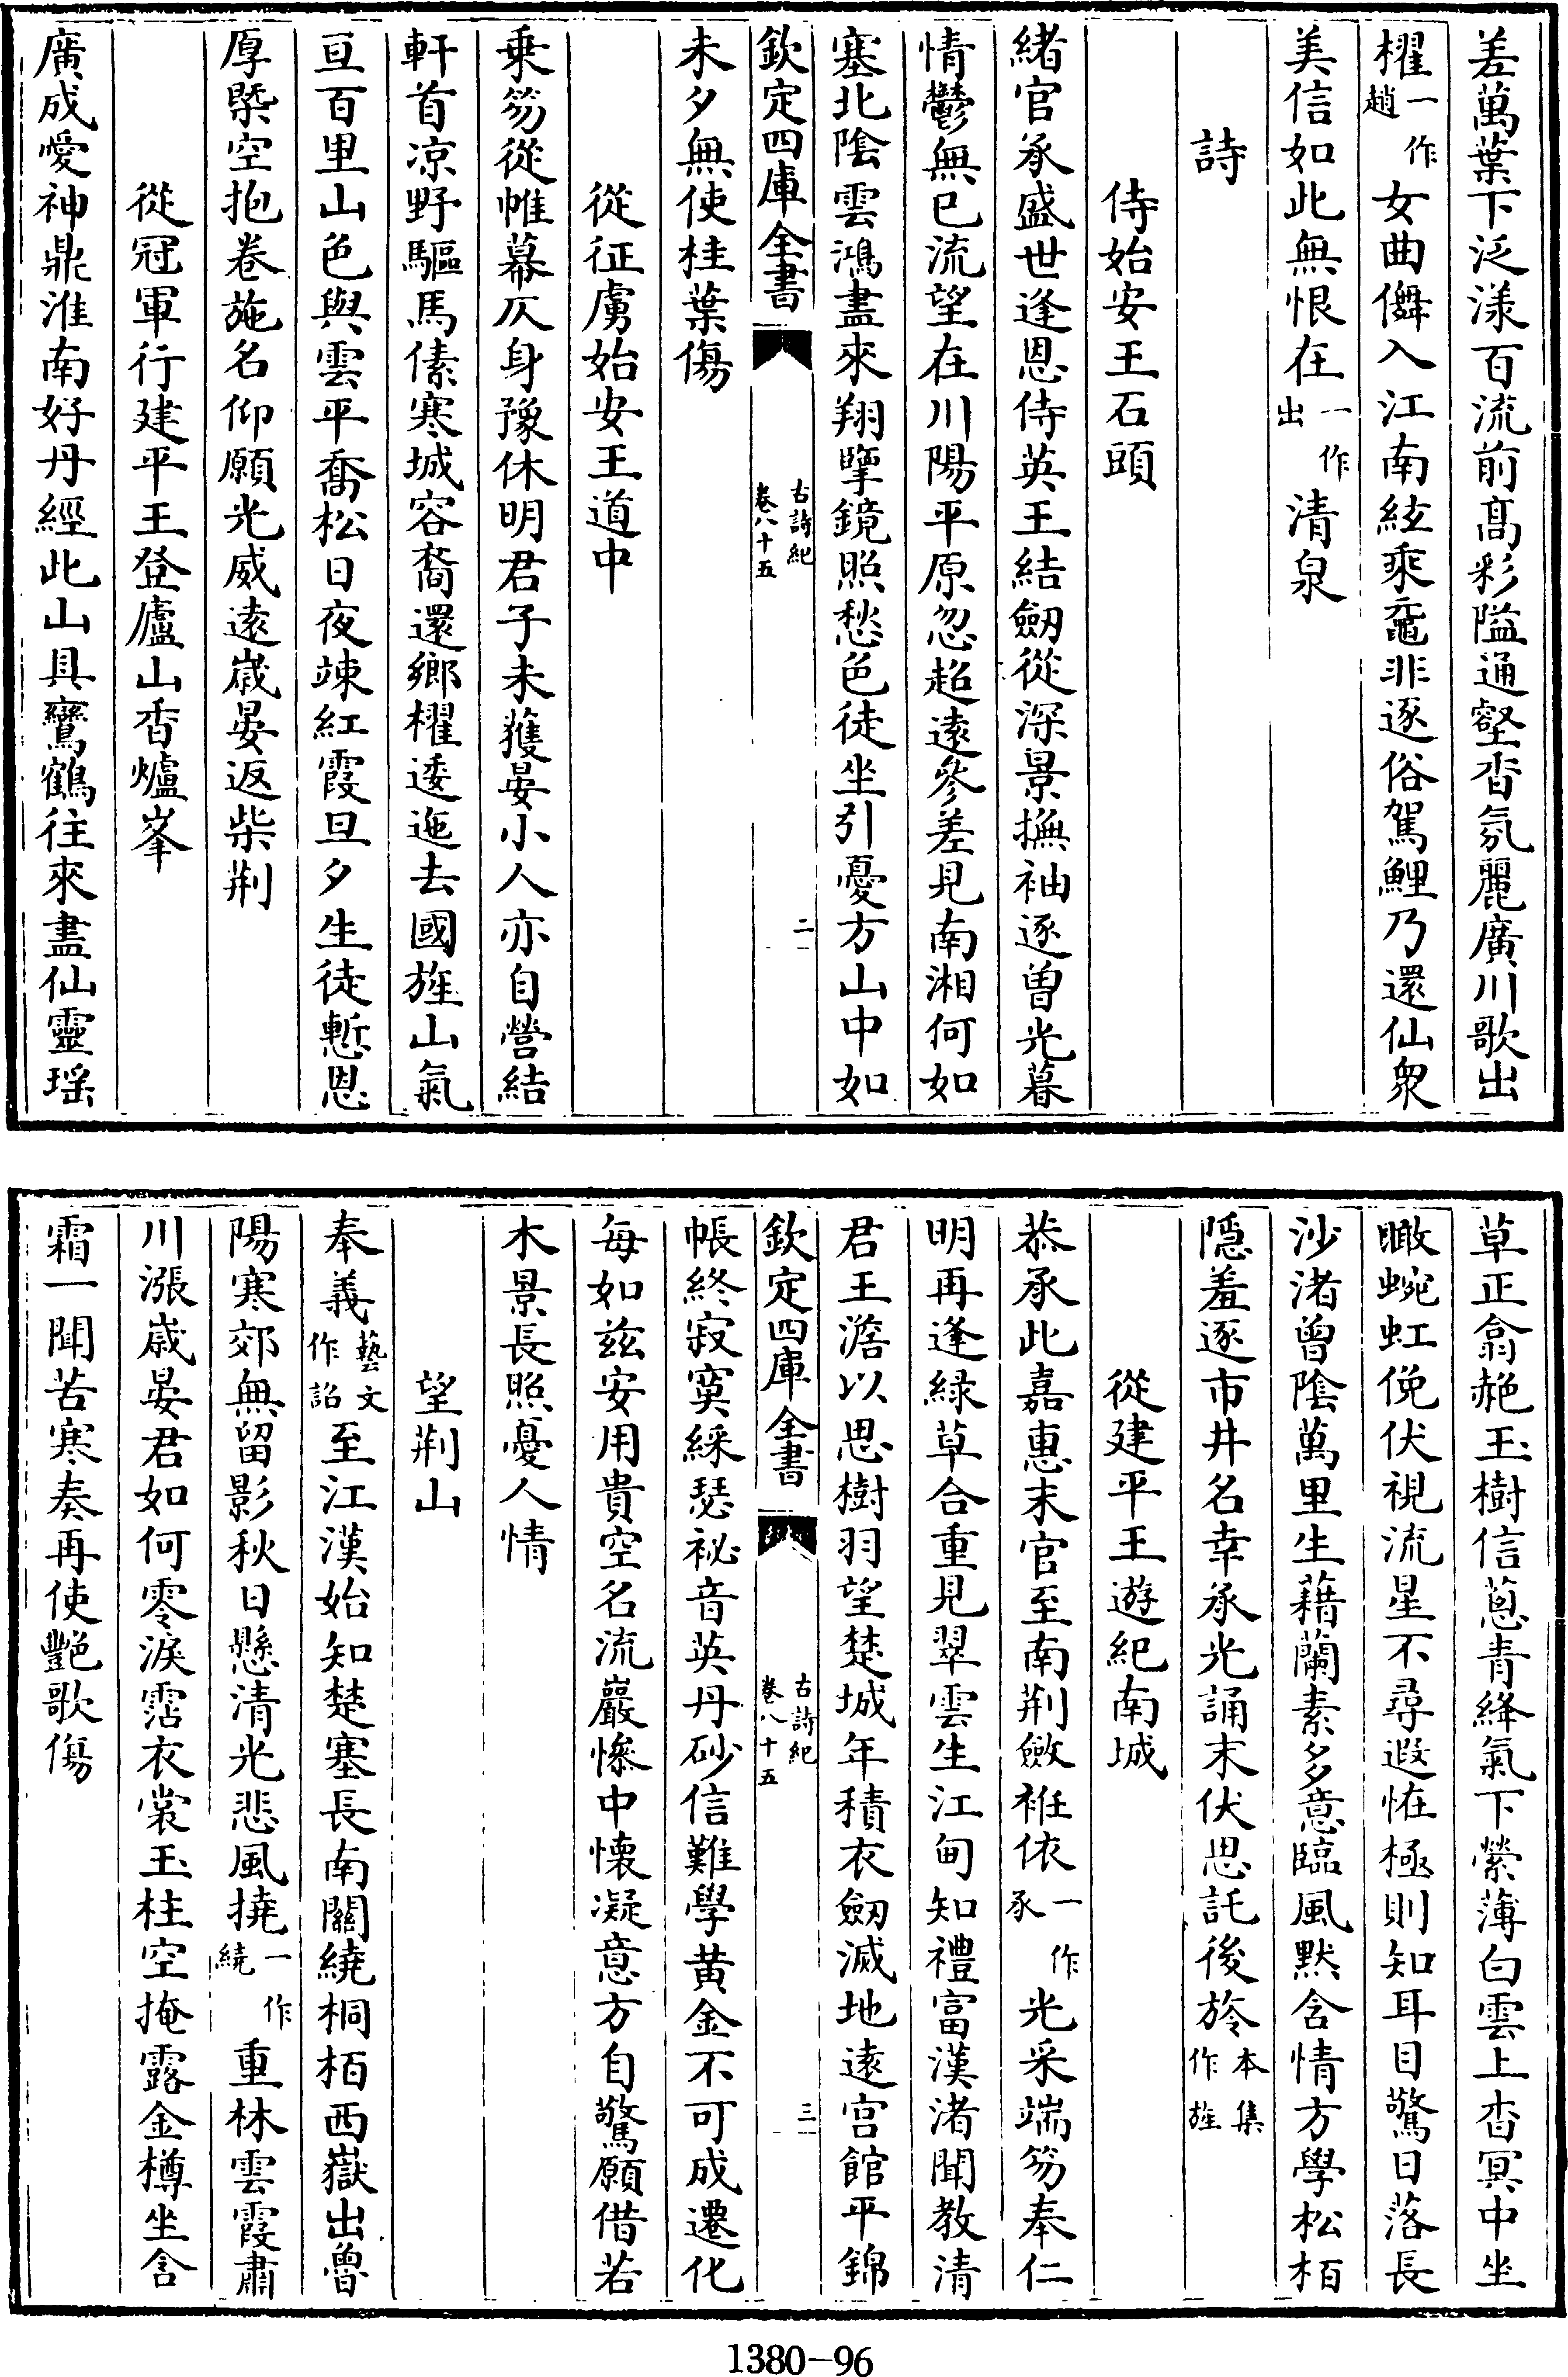 差萬葉下泛漾百流前髙彩隘通壑香氛麗廣川歌出
櫂一作趙女曲儛入江南絃乘黿非逐俗駕鯉乃還仙衆
美信如此無恨在一作出清泉
詩
侍始安王石頭
緒官承盛世逢恩侍英王結劒從深景撫袖逐曽光暮
情鬱無已流望在川陽平原忽超逺參差見南湘何如
塞北隂雲鴻盡來翔擥鏡照愁色徒坐引憂方山中如
欽定四庫全書
古詩紀
卷八十五
二
未夕無使桂葉傷
從征虜始安王道中
乗笏從帷幕仄身豫休明君子未獲晏小人亦自營結
軒首凉野驅馬傃寒城容裔還鄉櫂逶迤去國旌山氣
亘百里山色與雲平喬松日夜竦紅霞旦夕生徒慙恩
厚槩空抱卷施名仰願光威逺嵗晏返柴荆
從冠軍行建平王登廬山香爐峯
廣成愛神鼎淮南好丹經此山具鸞鶴往來盡仙靈瑶
草正翕赩玉樹信蔥青絳氣下縈薄白雲上杳冥中坐
瞰蜿虹俛伏視流星不尋遐恠極則知耳目驚日落長
沙渚曽隂萬里生藉蘭素多意臨風黙含情方學松栢
隠羞逐市井名幸承光誦末伏思託後旍本集作旌
從建平王遊紀南城
恭承此嘉惠末官至南荆斂衽依一作承光采端笏奉仁
明再逢緑草合重見翠雲生江甸知禮富漢渚聞教清
君王澹以思樹羽望楚城年積衣劒滅地逺宫館平錦
欽定四庫全書
古詩紀
卷八十五
三
帳終寂寞綵瑟祕音英丹砂信難學黄金不可成遷化
每如兹安用貴空名流巖慘中懐凝意方自驚願借若
木景長照憂人情
望荆山
奉義藝文作詔至江漢始知楚塞長南關繞桐栢西嶽出魯
陽寒郊無留影秋日懸清光悲風撓一作繞重林雲霞肅
川漲嵗晏君如何零淚霑衣裳玉柱空掩露金樽坐含
霜一聞苦寒奏再使艷歌傷
1380-96